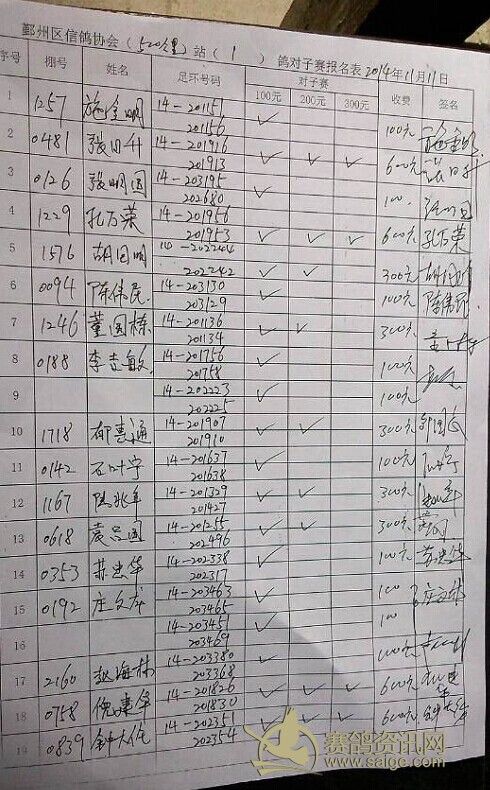 鄞州区信鸽协会（500公里）站（1）鸽对子赛报名表2014年11月11日
序号 棚号 姓名 足环号码 对子赛 收费 签名
100元 200元 300元
1 1257 施金明 14-201151 201156 ✓ 100元
2 0481 张日升 14-201916 201913 ✓ ✓ ✓ 600元
3 0126 张明国 14-203195 202680 ✓ 100
4 1229 孔万荣 14-201956 201953 ✓ ✓ ✓ 600元 孔万荣
5 1576 胡国明 14-202244 202242 ✓ ✓ 300元 胡国明
6 0094 陈伟民 14-203130 203129 ✓ 100元 陈伟民
7 1246 董国栋 14-201136 201134 ✓ ✓ 300元
8 0188 李志敏 14-201756 201758 ✓ 100元
9 14-202223 202225 ✓ 100元
10 1718 郁惠通 14-201907 201910 ✓ ✓ 300元
11 0142 石叶宇 14-201637 201638 ✓ 100元
12 1167 陆兆年 14-201329 201427 ✓ ✓ 300元
13 0618 袁吕国 14-201255 202496 ✓ ✓ 300元
14 0353 苏忠华 14-202338 202317 ✓ 100元 苏忠华
15 0192 庄文龙 14-203463 203465 ✓ 100 庄文龙
16 14-203451 203469 ✓ 100
17 2160 赵海林 14-203380 203368 ✓ 100元
18 0758 倪建华 14-201826 201830 ✓ ✓ ✓ 600元
19 0839 钟大伟 14-202351 202354 ✓ ✓ ✓ 600元 钟大伟
赛鸽资讯网
www.saigc.com